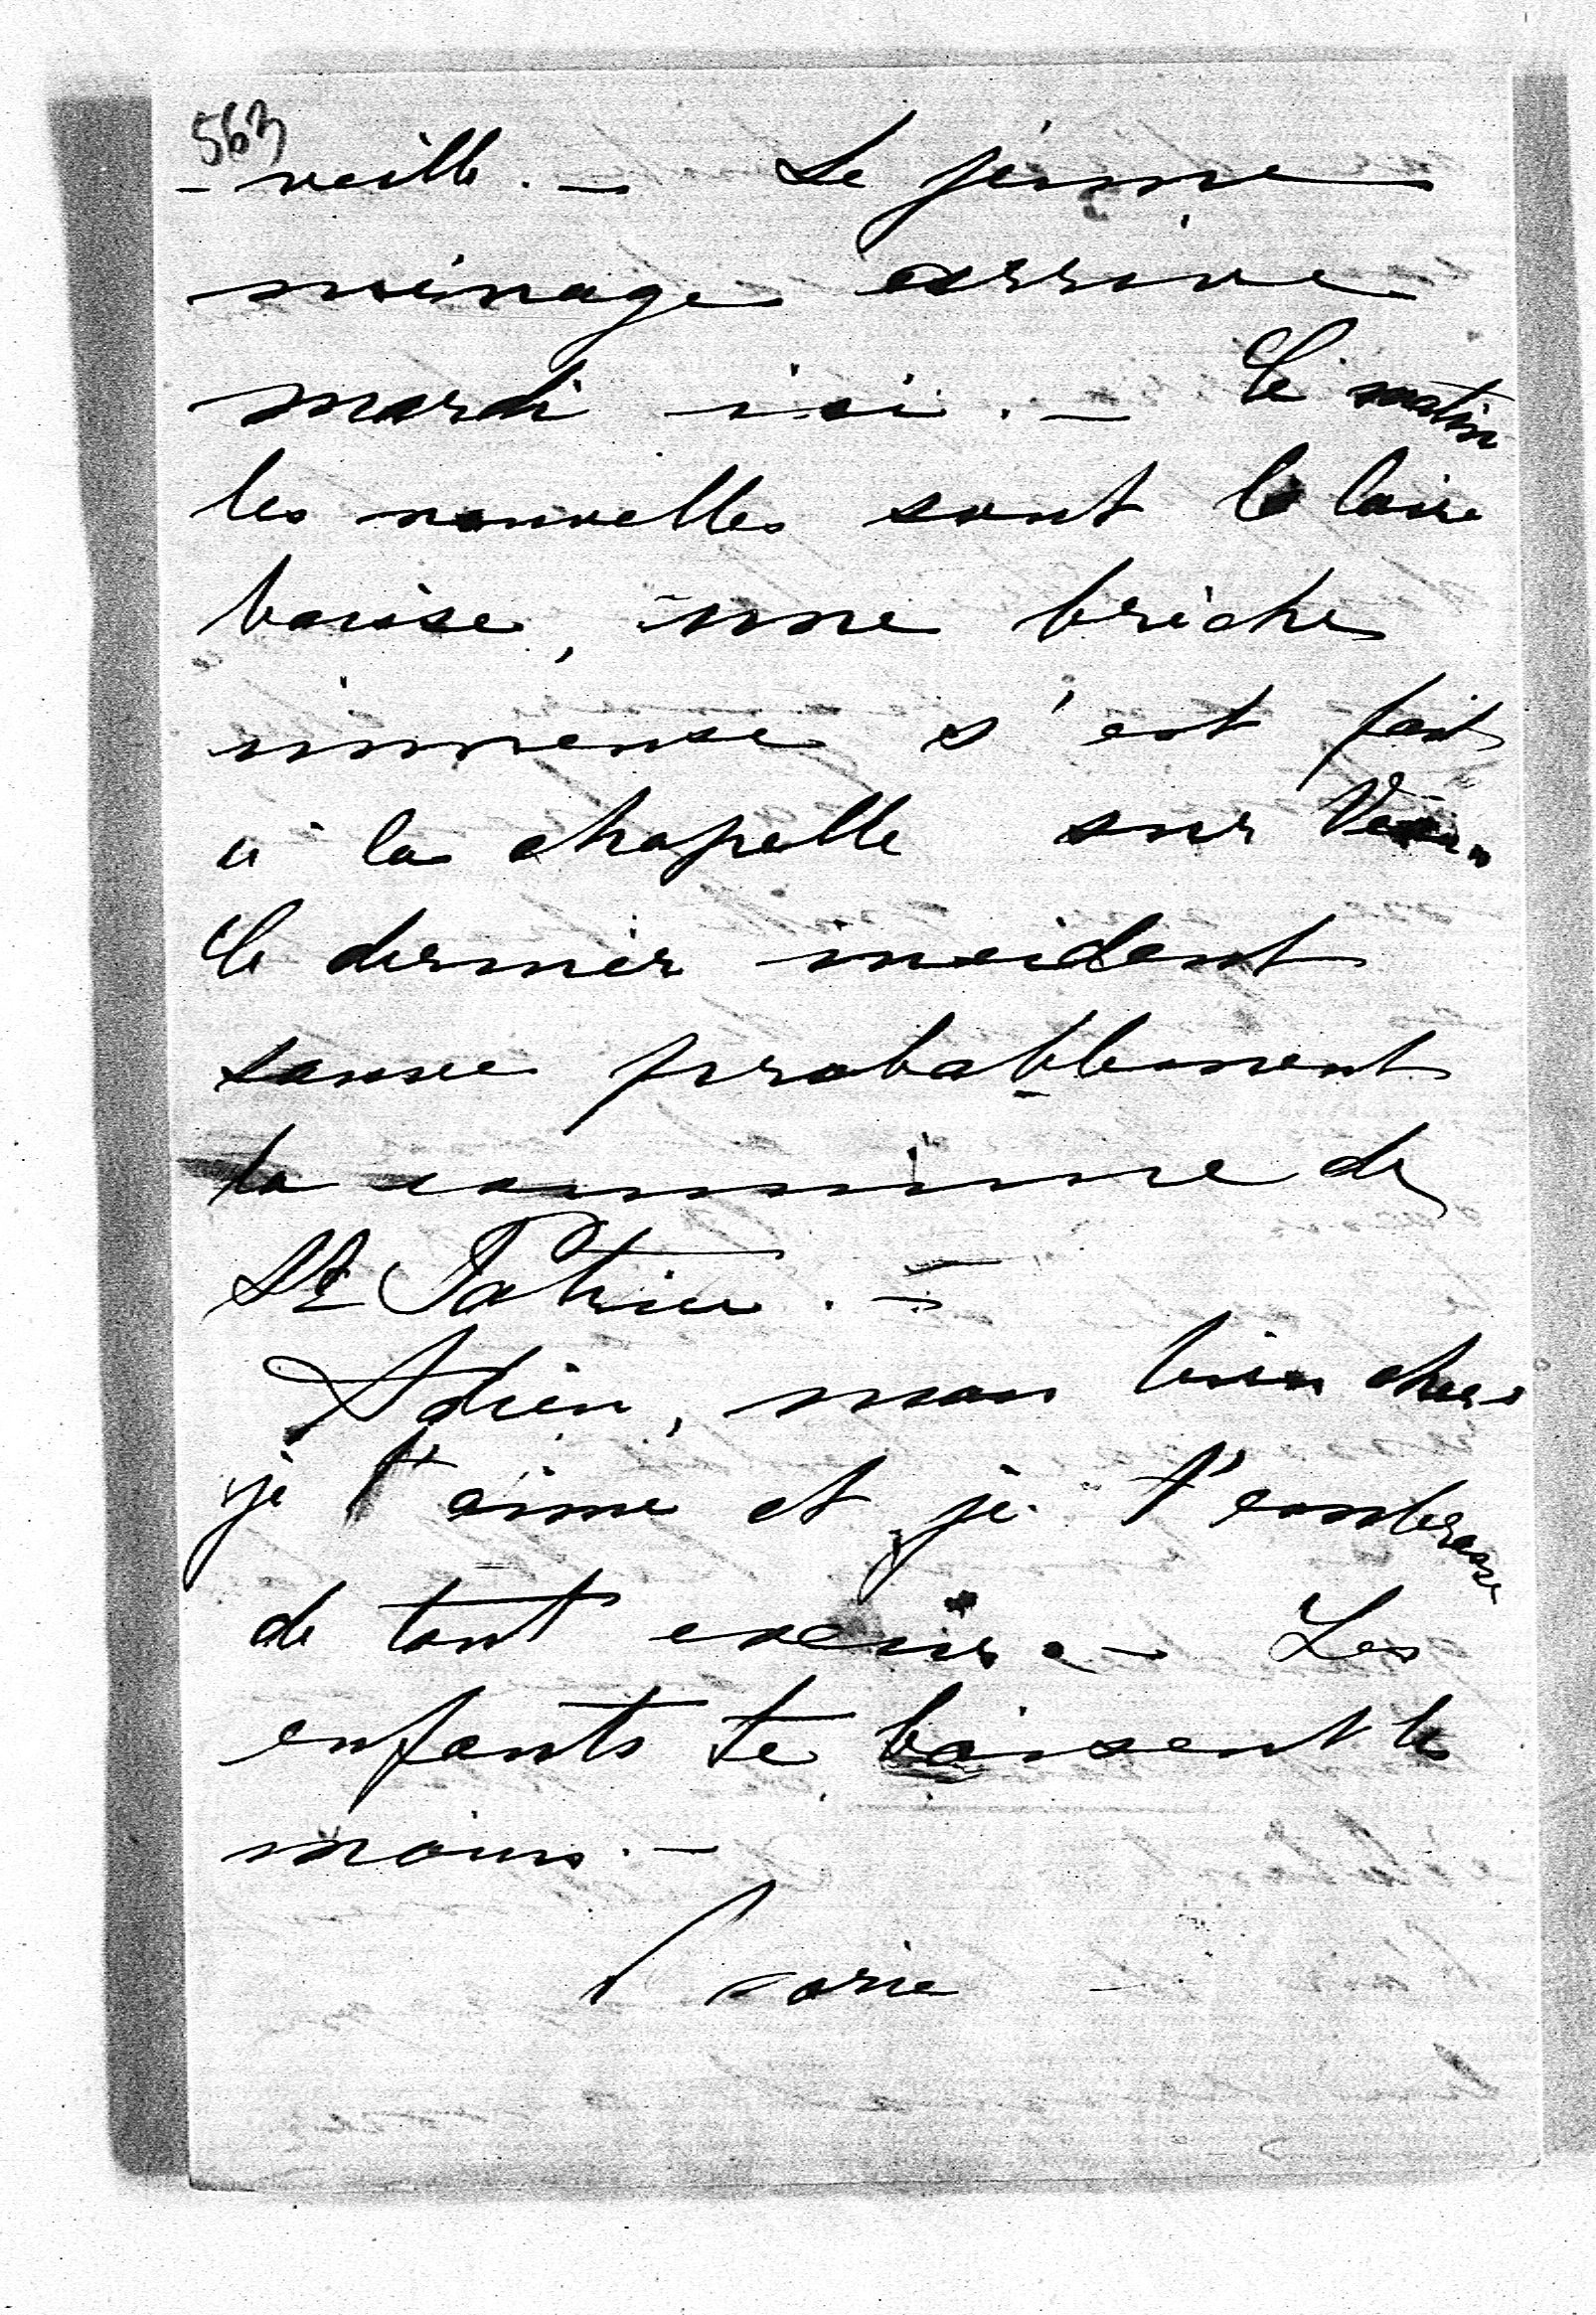 563
- veille. - Le jeune
ménage arrive
mardi ici. - Ce matin
les nouvelles sont la loire
baisse, une brèche
immense s'est fait
à la chapelle sur
Ce dernier incident
sauve probablement
la commune de
St Patrice. -
Adieu, mon bien cher
je t'aime et je t'embrasse
de tout cœur. - Les
enfants te baisent les
mains. -
Marie